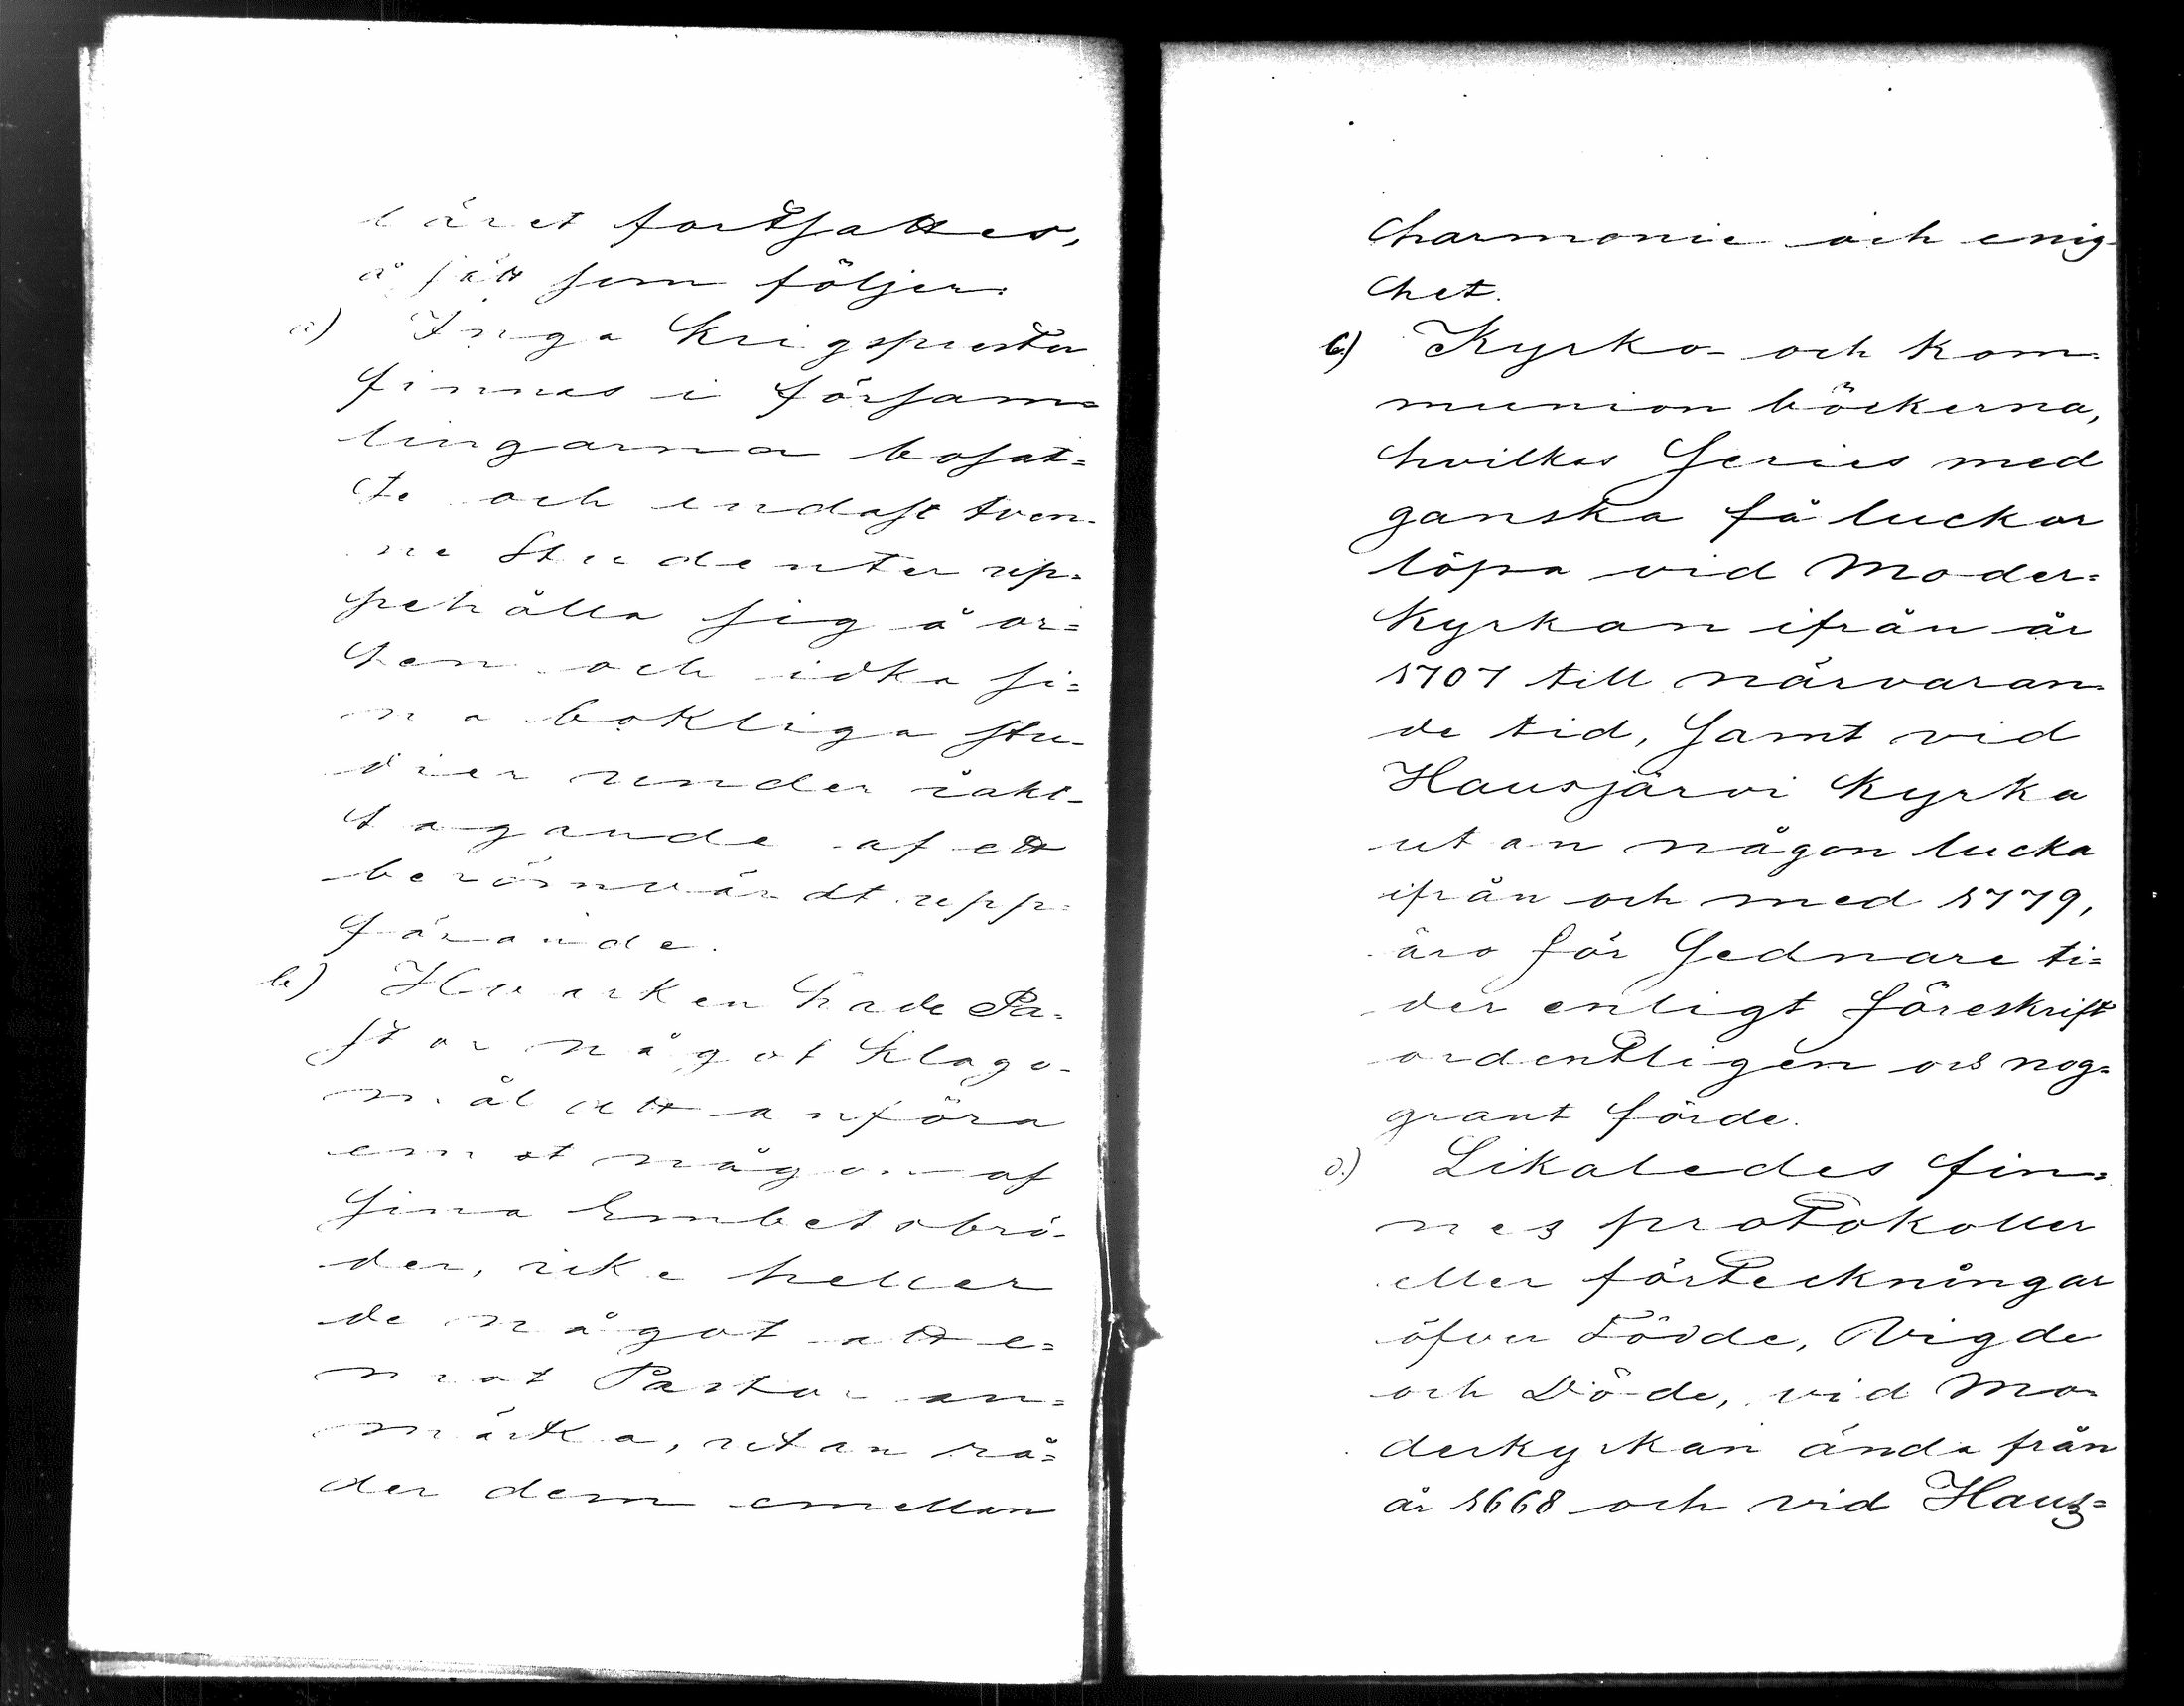 läret fortsattes,
å sätt som följer:
a) Inga Krigsprester
finnas i försam=
lingarna bosat=
te och endast tven-
ne Studenter up-
pehålla sig å or=
ten och idka si=
na bokliga stu-
dier under iakt-
tagande af ett
berömvärdt upp-
förande.
b) Hvarken hade Pa-
stor något Klago-
mål att anföra
emot någon af
sina Embetsbrö-
der, icke heller
de något att e=
mot Pastor an=
märka, utan rå=
der dem emellan
harmonie och enig-
het.
c) Kyrko- och Kom-
munion böckerna,
hvilkas Series med
ganska få luckor
löpa vid Moder=
Kyrkan ifrån år
1707 till närvaran-
de tid, samt vid
Hausjärvi Kyrka
utan någon lucka
ifrån och med 1779,
äro för sednare ti=
der enligt föreskrift
ordentligen och nog-
grant förde.
d.) Likaledes fin=
nes protokoller
eller förteckningar
öfver Födde, Vigde
och Döde, vid Mo-
derkyrkan ända från
år 1668 och vid Haus=